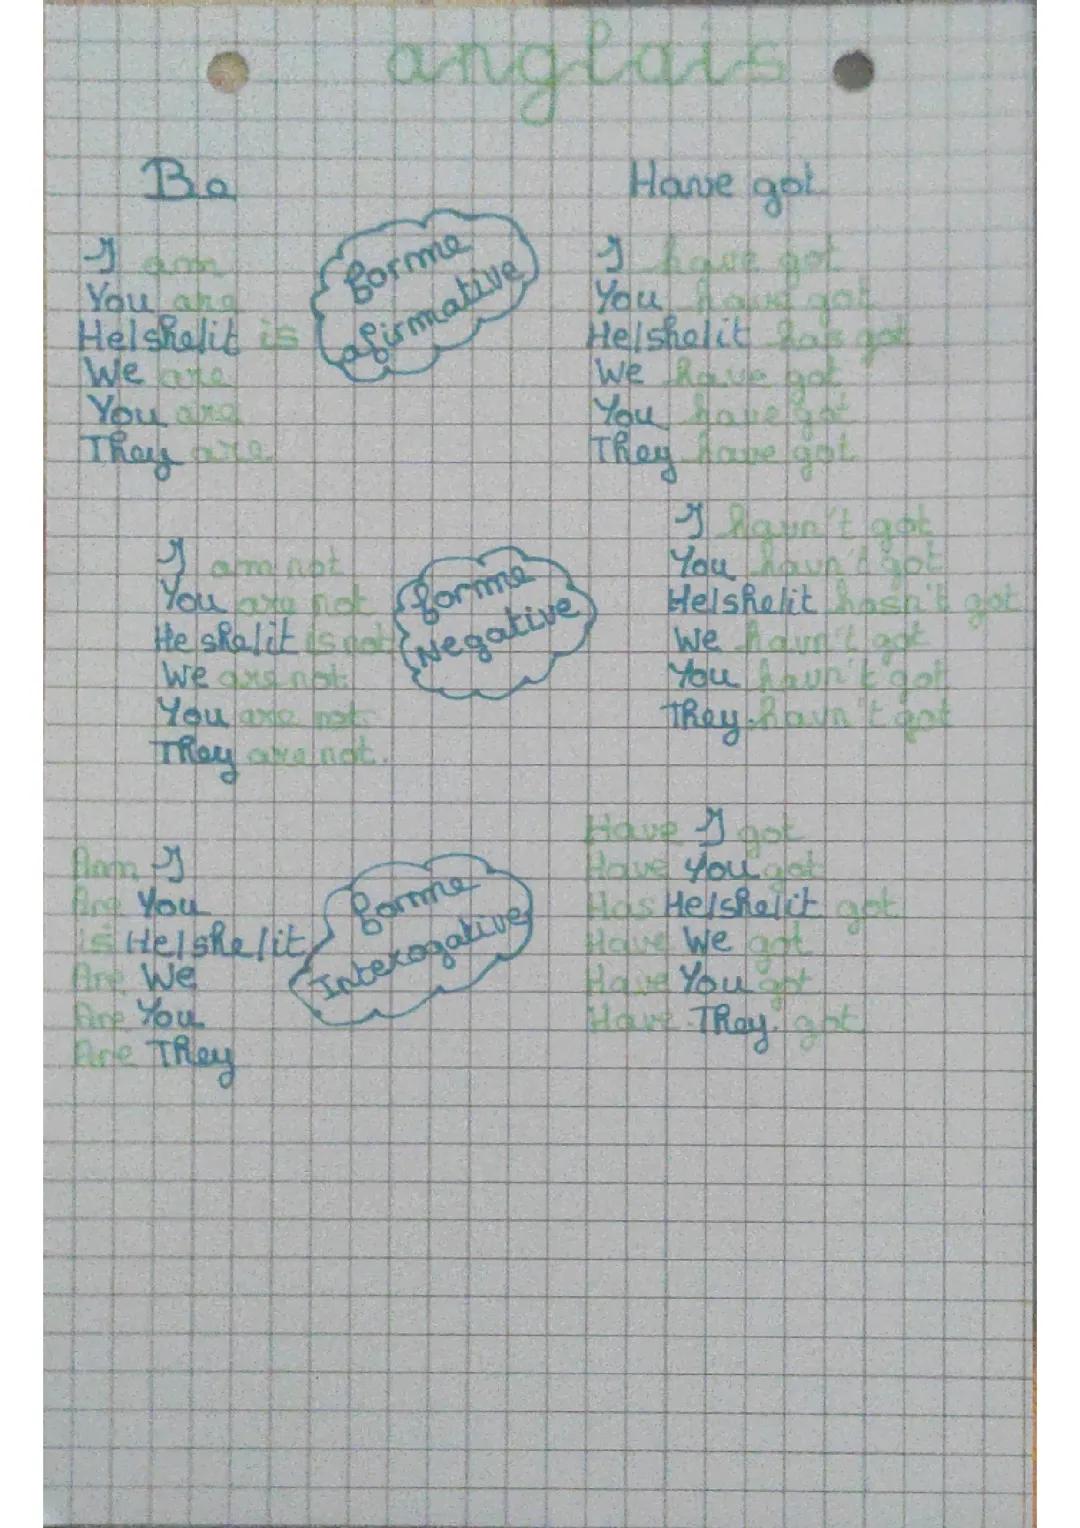 anglais
Be
Have got
forme
afirmative
I am
You are
He/she/it is
We are
You are
They are
I have got
You have got
He/she/it has got
We have got
You have got
They have got
forme
Negative
I am not
You are not
He she/it is not
We are not
You are not
They are not.
I havn't got
You havn't got
He/she/it hasn't got
We havn't got
You havn't got
They havn't got
forme
Interogative
Am I
Are You
is He/she/it
Are We
Are You
Are They
Have I got
Have You got
Has He/she/it got
Have We got
Have You got
Have They got